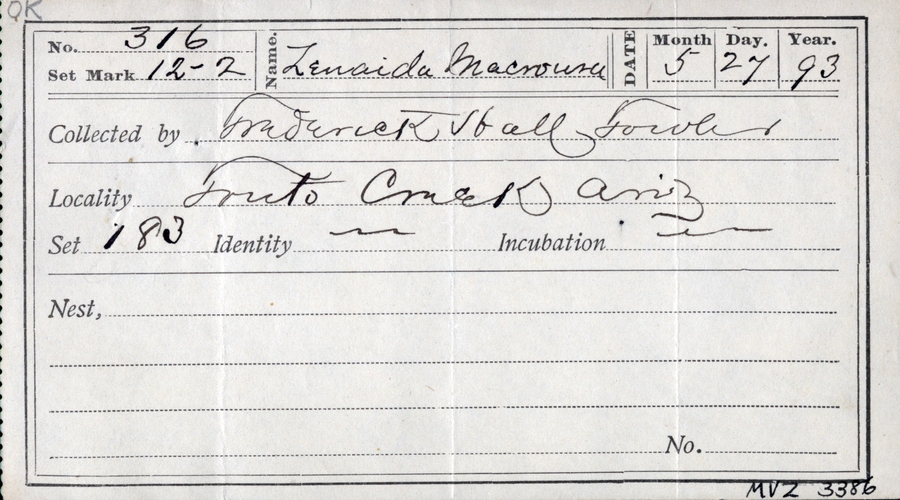 OK
No. 316 Name. Zenaida Macroura DATE Month Day. Year.
Set Mark 12-2 5 27 93
Collected by Frederick Hall Fowler
Locality Creek Ariz
Set 183 Identity — Incubation —
Nest,
No.
MVZ 3386